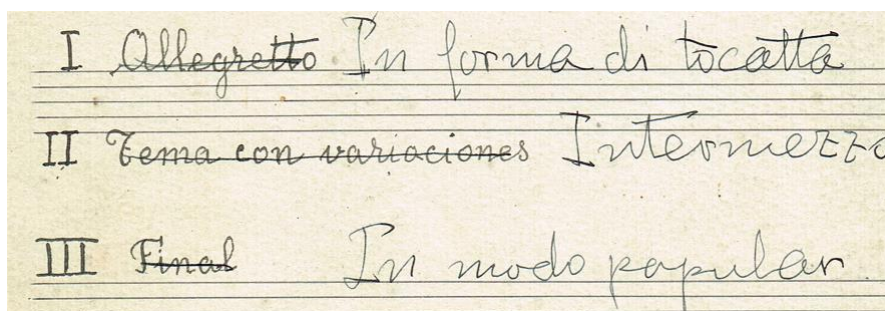 I Allegretto In forma di tocatta
II Tema con variaciones Intermezzo
III Final In modo popular